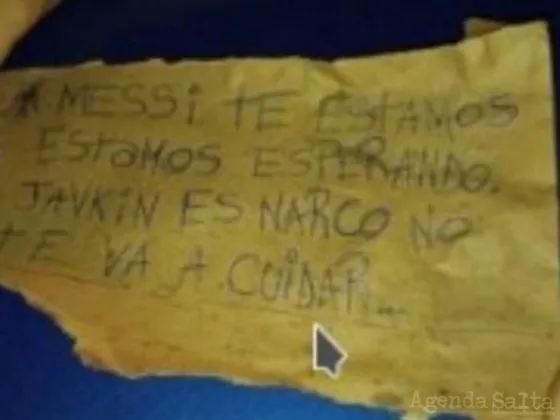 MESSi TE ESTAMOS
ESTAMOS ESPERANDO.
JAVKIN ES NARCO NO
TE VA A CUIDAR...
Agenda Salta